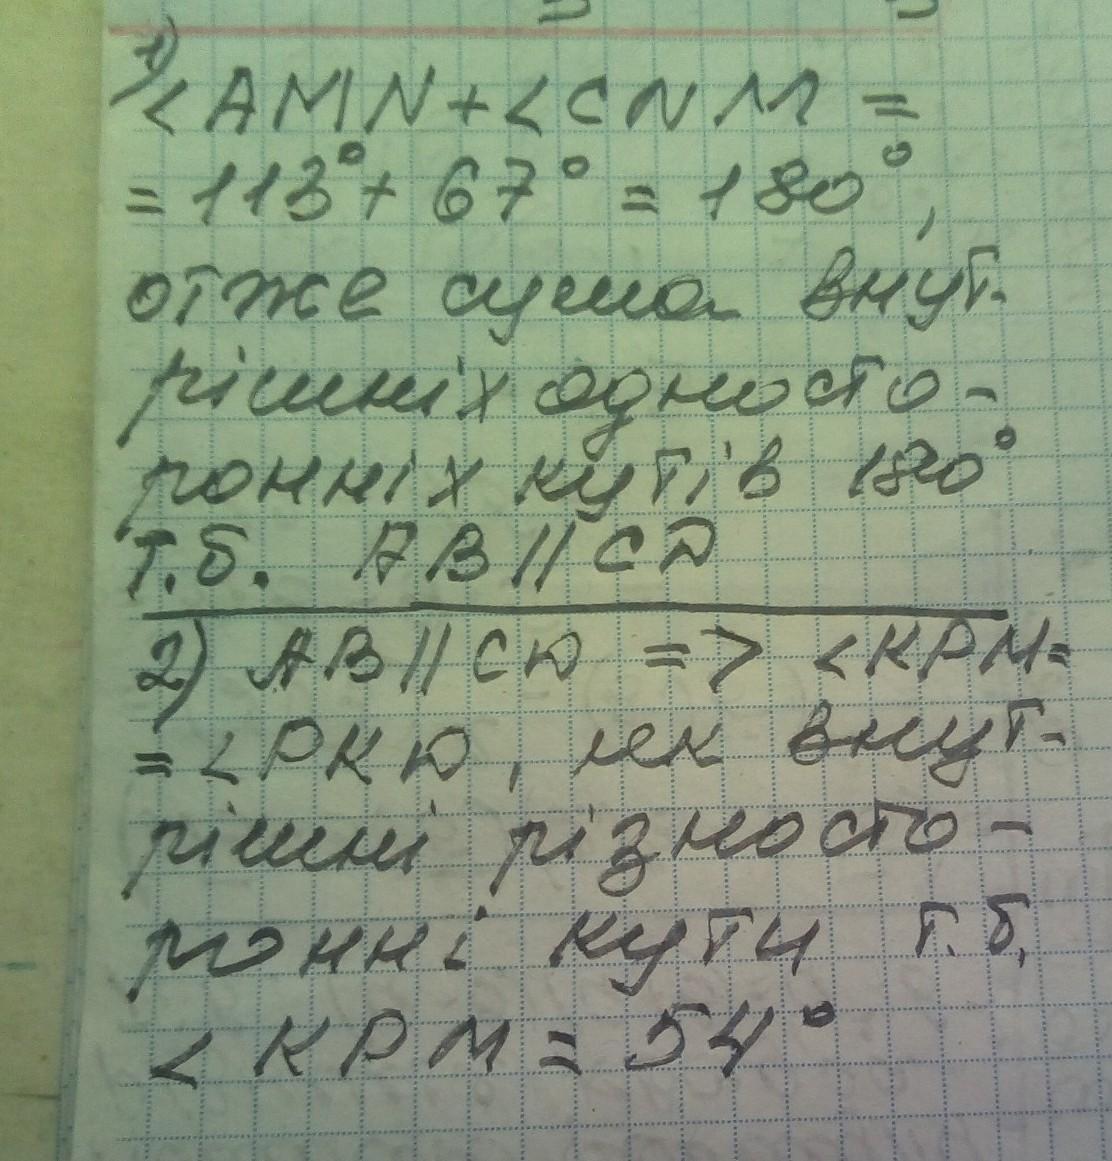 1)
<AMN+<CNM =
= 113°+ 67° = 180°,
отже сума внут-
рішніх односто-
ронніх кутів 180°
т.б. AB||CD
2) AB||CD => <KPM=
= <PKD, як внут-
рішні різносто-
ронні кути т.б.
<KPM = 54°